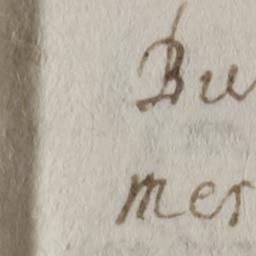 Bu
mer